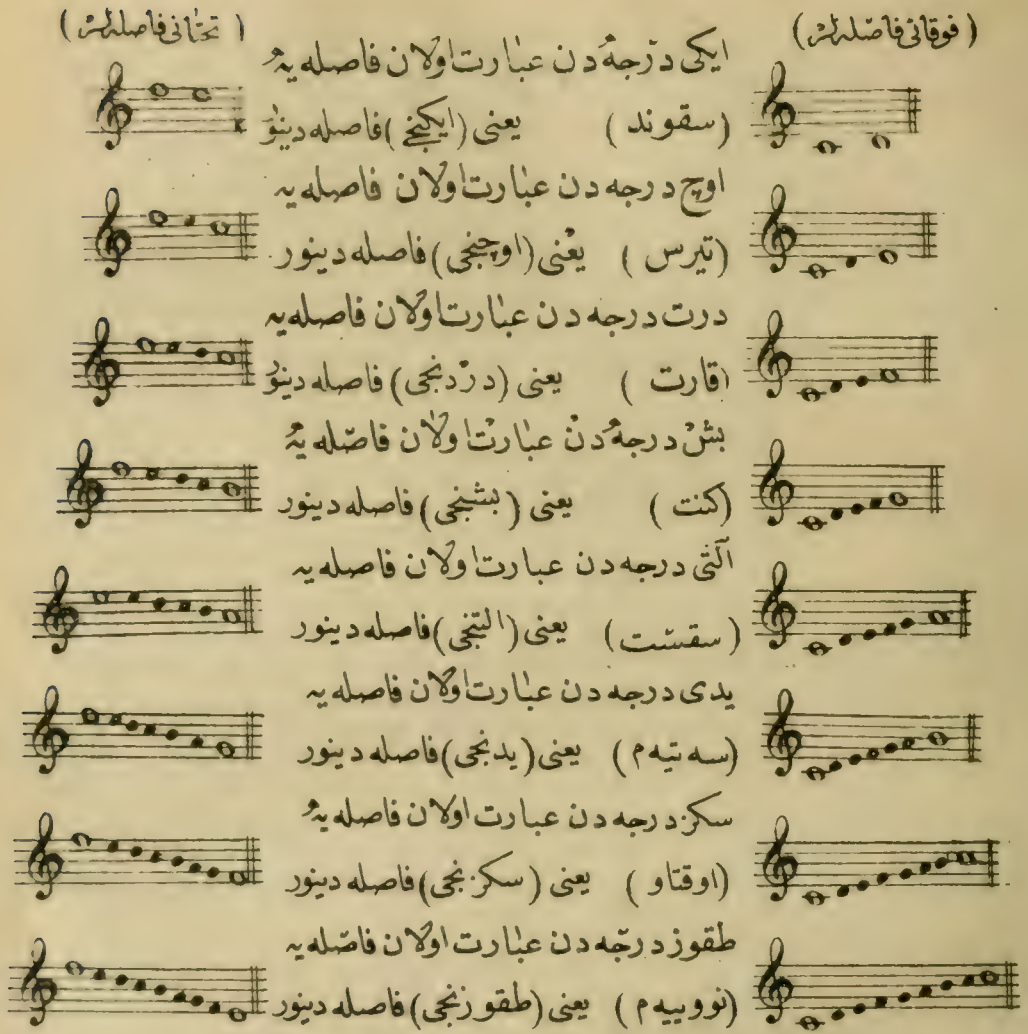 ( فوقانی فاصله‌لر )
( تحتانی فاصله‌لر )
ایکی درجه‌دن عبارت اولان فاصله‌یه
(سقوند) یعنی (ایکنجی) فاصله دینور
اوچ درجه‌دن عبارت اولان فاصله‌یه
(تیرس) یعنی (اوچنجی) فاصله دینور
درت درجه‌دن عبارت اولان فاصله‌یه
(قارت) یعنی (دردنجی) فاصله دینور
بش درجه‌دن عبارت اولان فاصله‌یه
(کنت) یعنی (بشنجی) فاصله دینور
آلتی درجه‌دن عبارت اولان فاصله‌یه
(سقست) یعنی (التنجی) فاصله دینور
یدی درجه‌دن عبارت اولان فاصله‌یه
(سه‌تیه‌م) یعنی (یدنجی) فاصله دینور
سکز درجه‌دن عبارت اولان فاصله‌یه
(اوقتاو) یعنی (سکزنجی) فاصله دینور
طقوز درجه‌دن عبارت اولان فاصله‌یه
(نووییه‌م) یعنی (طقوزنجی) فاصله دینور